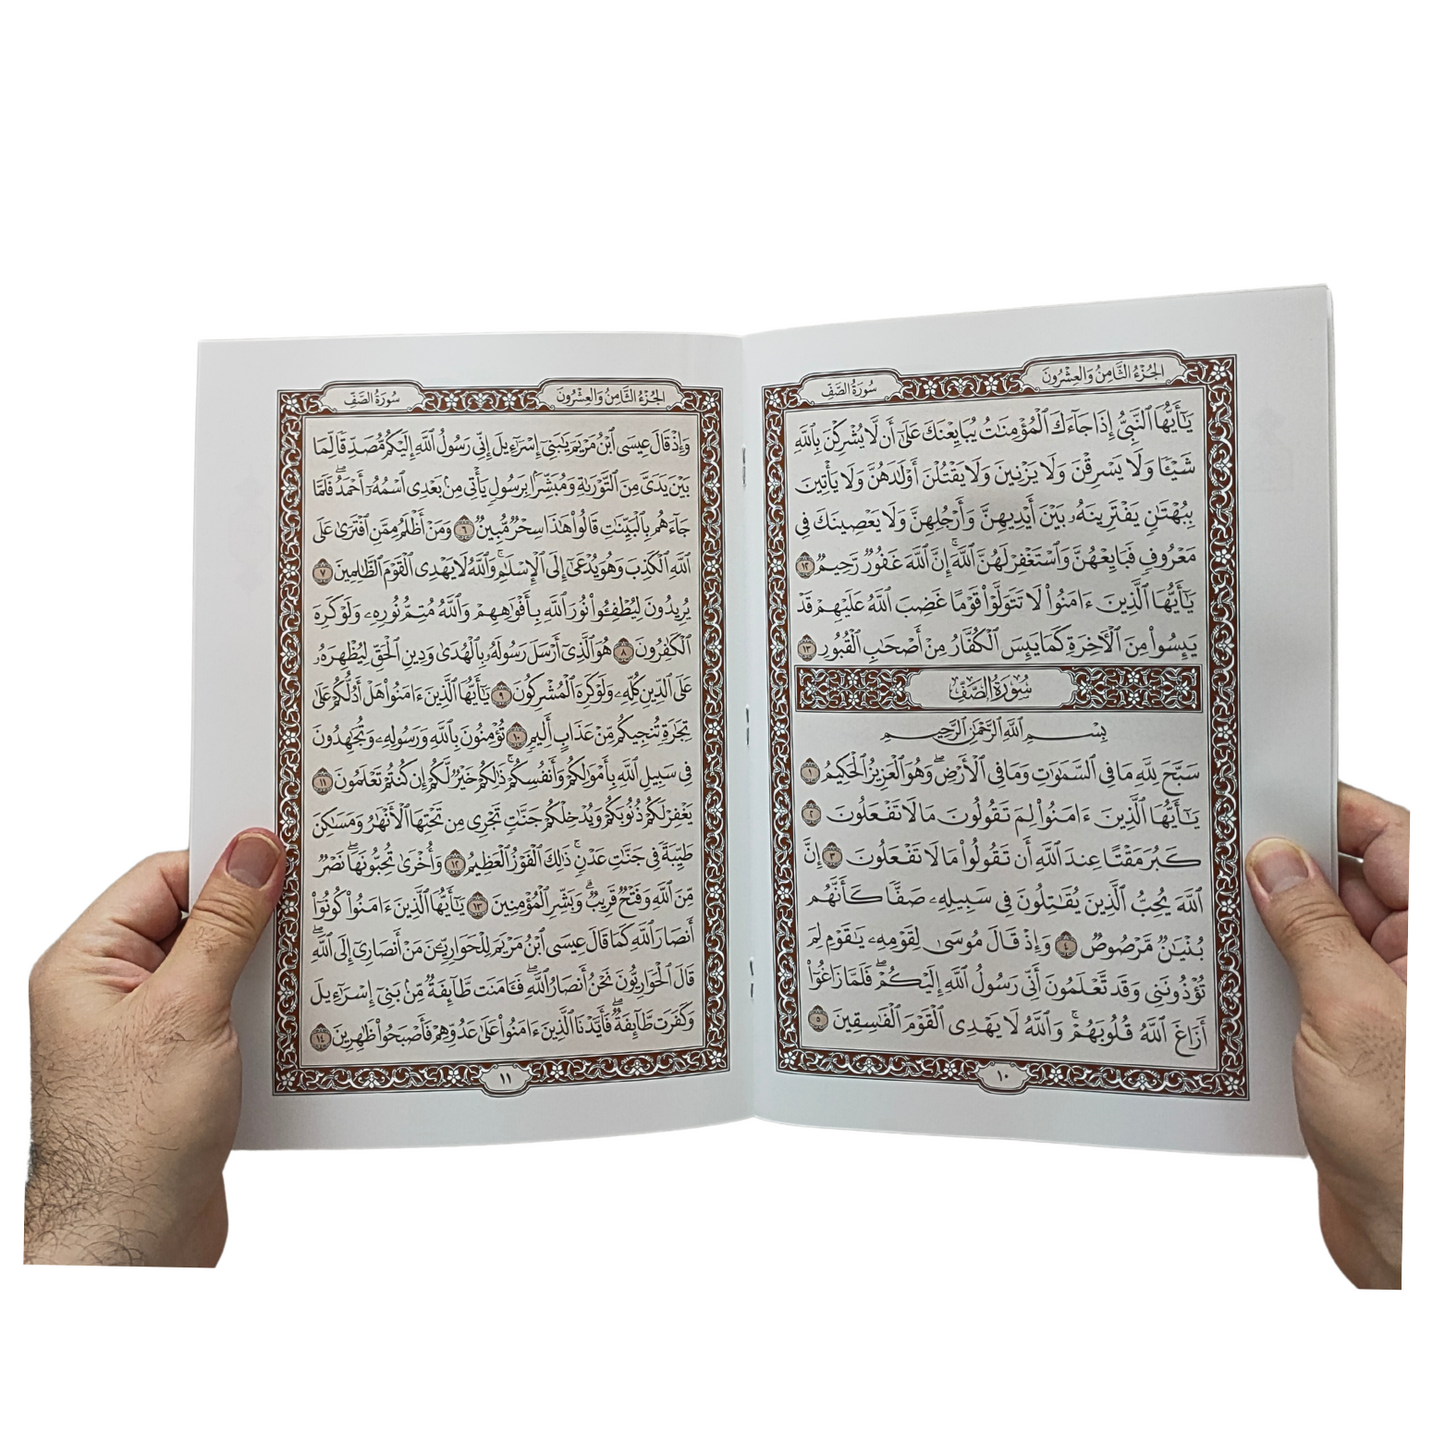 سُورَةُ الصَّفِّ الجُزْءُ الثَّامِنُ وَالعِشْرُونَ
يَٰٓأَيُّهَا ٱلنَّبِىُّ إِذَا جَآءَكَ ٱلْمُؤْمِنَٰتُ يُبَايِعْنَكَ عَلَىٰٓ أَن لَّا يُشْرِكْنَ بِٱللَّهِ
شَيْـًٔا وَلَا يَسْرِقْنَ وَلَا يَزْنِينَ وَلَا يَقْتُلْنَ أَوْلَٰدَهُنَّ وَلَا يَأْتِينَ
بِبُهْتَٰنٍ يَفْتَرِينَهُۥ بَيْنَ أَيْدِيهِنَّ وَأَرْجُلِهِنَّ وَلَا يَعْصِينَكَ فِى
مَعْرُوفٍ فَبَايِعْهُنَّ وَٱسْتَغْفِرْ لَهُنَّ ٱللَّهَ ۖ إِنَّ ٱللَّهَ غَفُورٌ رَّحِيمٌ ١٢
يَٰٓأَيُّهَا ٱلَّذِينَ ءَامَنُوا۟ لَا تَتَوَلَّوْا۟ قَوْمًا غَضِبَ ٱللَّهُ عَلَيْهِمْ قَدْ
يَئِسُوا۟ مِنَ ٱلْءَاخِرَةِ كَمَا يَئِسَ ٱلْكُفَّارُ مِنْ أَصْحَٰبِ ٱلْقُبُورِ ١٣
سُورَةُ الصَّفِّ
بِسْمِ ٱللَّهِ ٱلرَّحْمَٰنِ ٱلرَّحِيمِ
سَبَّحَ لِلَّهِ مَا فِى ٱلسَّمَٰوَٰتِ وَمَا فِى ٱلْأَرْضِ ۖ وَهُوَ ٱلْعَزِيزُ ٱلْحَكِيمُ ١
يَٰٓأَيُّهَا ٱلَّذِينَ ءَامَنُوا۟ لِمَ تَقُولُونَ مَا لَا تَفْعَلُونَ ٢
كَبُرَ مَقْتًا عِندَ ٱللَّهِ أَن تَقُولُوا۟ مَا لَا تَفْعَلُونَ ٣ إِنَّ
ٱللَّهَ يُحِبُّ ٱلَّذِينَ يُقَٰتِلُونَ فِى سَبِيلِهِۦ صَفًّا كَأَنَّهُم
بُنْيَٰنٌ مَّرْصُوصٌ ٤ وَإِذْ قَالَ مُوسَىٰ لِقَوْمِهِۦ يَٰقَوْمِ لِمَ
تُؤْذُونَنِى وَقَد تَّعْلَمُونَ أَنِّى رَسُولُ ٱللَّهِ إِلَيْكُمْ ۖ فَلَمَّا زَاغُوٓا۟
أَزَاغَ ٱللَّهُ قُلُوبَهُمْ ۚ وَٱللَّهُ لَا يَهْدِى ٱلْقَوْمَ ٱلْفَٰسِقِينَ ٥
١٠
سُورَةُ الصَّفِّ الجُزْءُ الثَّامِنُ وَالعِشْرُونَ
وَإِذْ قَالَ عِيسَى ٱبْنُ مَرْيَمَ يَٰبَنِىٓ إِسْرَٰٓءِيلَ إِنِّى رَسُولُ ٱللَّهِ إِلَيْكُم مُّصَدِّقًا لِّمَا
بَيْنَ يَدَىَّ مِنَ ٱلتَّوْرَىٰةِ وَمُبَشِّرًۢا بِرَسُولٍ يَأْتِى مِنۢ بَعْدِى ٱسْمُهُۥٓ أَحْمَدُ ۖ فَلَمَّا
جَآءَهُم بِٱلْبَيِّنَٰتِ قَالُوا۟ هَٰذَا سِحْرٌ مُّبِينٌ ٦ وَمَنْ أَظْلَمُ مِمَّنِ ٱفْتَرَىٰ عَلَى
ٱللَّهِ ٱلْكَذِبَ وَهُوَ يُدْعَىٰٓ إِلَى ٱلْإِسْلَٰمِ ۚ وَٱللَّهُ لَا يَهْدِى ٱلْقَوْمَ ٱلظَّٰلِمِينَ ٧
يُرِيدُونَ لِيُطْفِـُٔوا۟ نُورَ ٱللَّهِ بِأَفْوَٰهِهِمْ وَٱللَّهُ مُتِمُّ نُورِهِۦ وَلَوْ كَرِهَ
ٱلْكَٰفِرُونَ ٨ هُوَ ٱلَّذِىٓ أَرْسَلَ رَسُولَهُۥ بِٱلْهُدَىٰ وَدِينِ ٱلْحَقِّ لِيُظْهِرَهُۥ
عَلَى ٱلدِّينِ كُلِّهِۦ وَلَوْ كَرِهَ ٱلْمُشْرِكُونَ ٩ يَٰٓأَيُّهَا ٱلَّذِينَ ءَامَنُوا۟ هَلْ أَدُلُّكُمْ عَلَىٰ
تِجَٰرَةٍ تُنجِيكُم مِّنْ عَذَابٍ أَلِيمٍ ١٠ تُؤْمِنُونَ بِٱللَّهِ وَرَسُولِهِۦ وَتُجَٰهِدُونَ
فِى سَبِيلِ ٱللَّهِ بِأَمْوَٰلِكُمْ وَأَنفُسِكُمْ ۚ ذَٰلِكُمْ خَيْرٌ لَّكُمْ إِن كُنتُمْ تَعْلَمُونَ ١١
يَغْفِرْ لَكُمْ ذُنُوبَكُمْ وَيُدْخِلْكُمْ جَنَّٰتٍ تَجْرِى مِن تَحْتِهَا ٱلْأَنْهَٰرُ وَمَسَٰكِنَ
طَيِّبَةً فِى جَنَّٰتِ عَدْنٍ ۚ ذَٰلِكَ ٱلْفَوْزُ ٱلْعَظِيمُ ١٢ وَأُخْرَىٰ تُحِبُّونَهَا ۖ نَصْرٌ
مِّنَ ٱللَّهِ وَفَتْحٌ قَرِيبٌ ۗ وَبَشِّرِ ٱلْمُؤْمِنِينَ ١٣ يَٰٓأَيُّهَا ٱلَّذِينَ ءَامَنُوا۟ كُونُوٓا۟
أَنصَارَ ٱللَّهِ كَمَا قَالَ عِيسَى ٱبْنُ مَرْيَمَ لِلْحَوَارِيِّـۧنَ مَنْ أَنصَارِىٓ إِلَى ٱللَّهِ ۖ
قَالَ ٱلْحَوَارِيُّونَ نَحْنُ أَنصَارُ ٱللَّهِ ۖ فَـَٔامَنَت طَّآئِفَةٌ مِّنۢ بَنِىٓ إِسْرَٰٓءِيلَ
وَكَفَرَت طَّآئِفَةٌ ۖ فَأَيَّدْنَا ٱلَّذِينَ ءَامَنُوا۟ عَلَىٰ عَدُوِّهِمْ فَأَصْبَحُوا۟ ظَٰهِرِينَ ١٤
١١